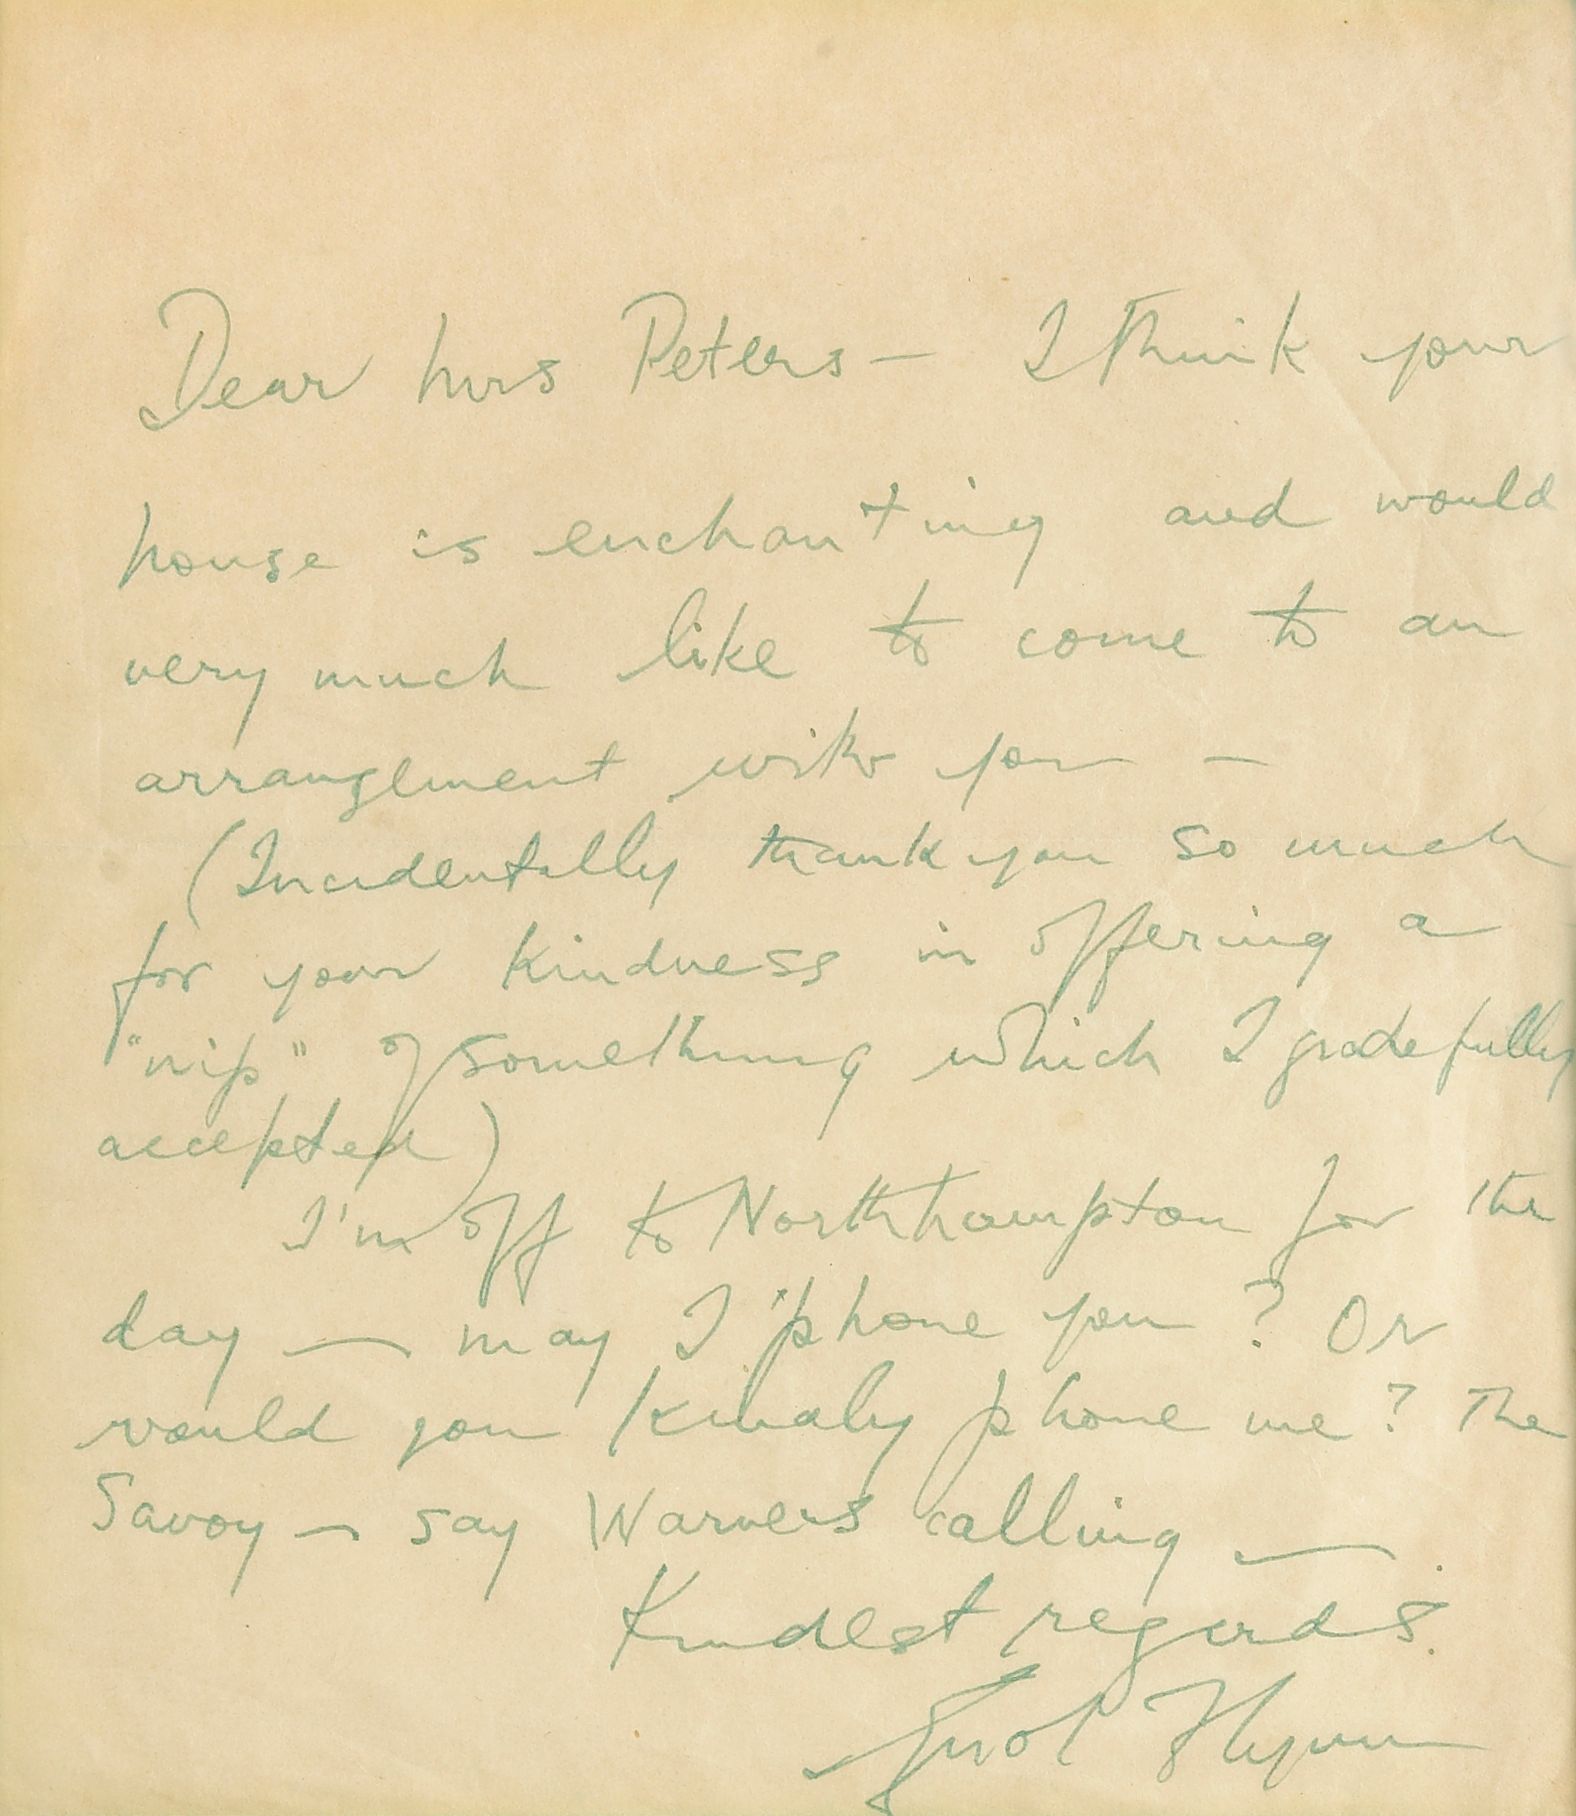 Dear Mrs Peters — I think your
house is enchanting and would
very much like to come to an
arrangement with you —
(Incidentally thank you so much
for your kindness in offering a
"nip" of something which I gratefully
accepted)
I'm off to Northhampton for the
day — may I 'phone you? Or
would you kindly phone me? The
Savoy — say Warners calling —
Kindest regards.
Errol Flynn